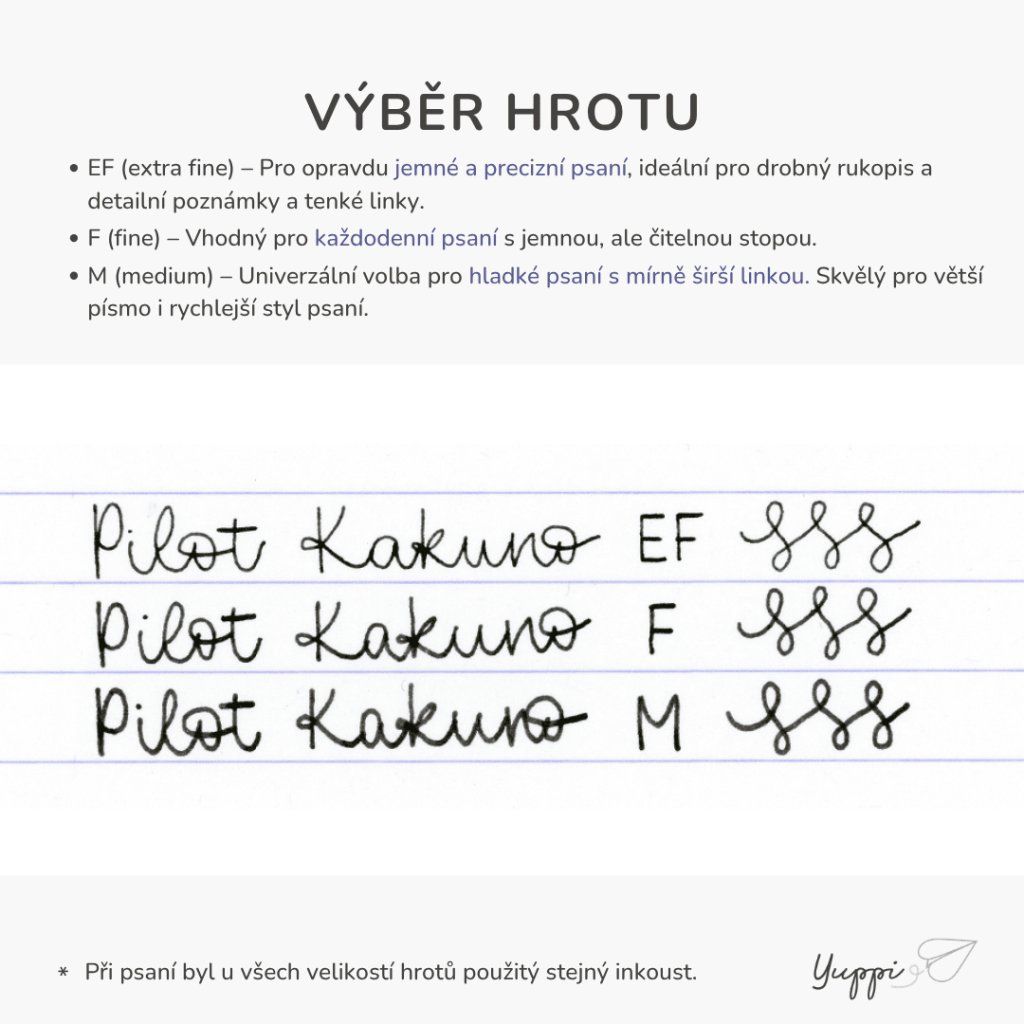 VÝBĚR HROTU
• EF (extra fine) – Pro opravdu jemné a precizní psaní, ideální pro drobný rukopis a
detailní poznámky a tenké linky.
• F (fine) – Vhodný pro každodenní psaní s jemnou, ale čitelnou stopou.
• M (medium) – Univerzální volba pro hladké psaní s mírně širší linkou. Skvělý pro větší
písmo i rychlejší styl psaní.
Pilot Kakuno EF sss
Pilot Kakuno F sss
Pilot Kakuno M sss
* Při psaní byl u všech velikostí hrotů použitý stejný inkoust.
Yuppi